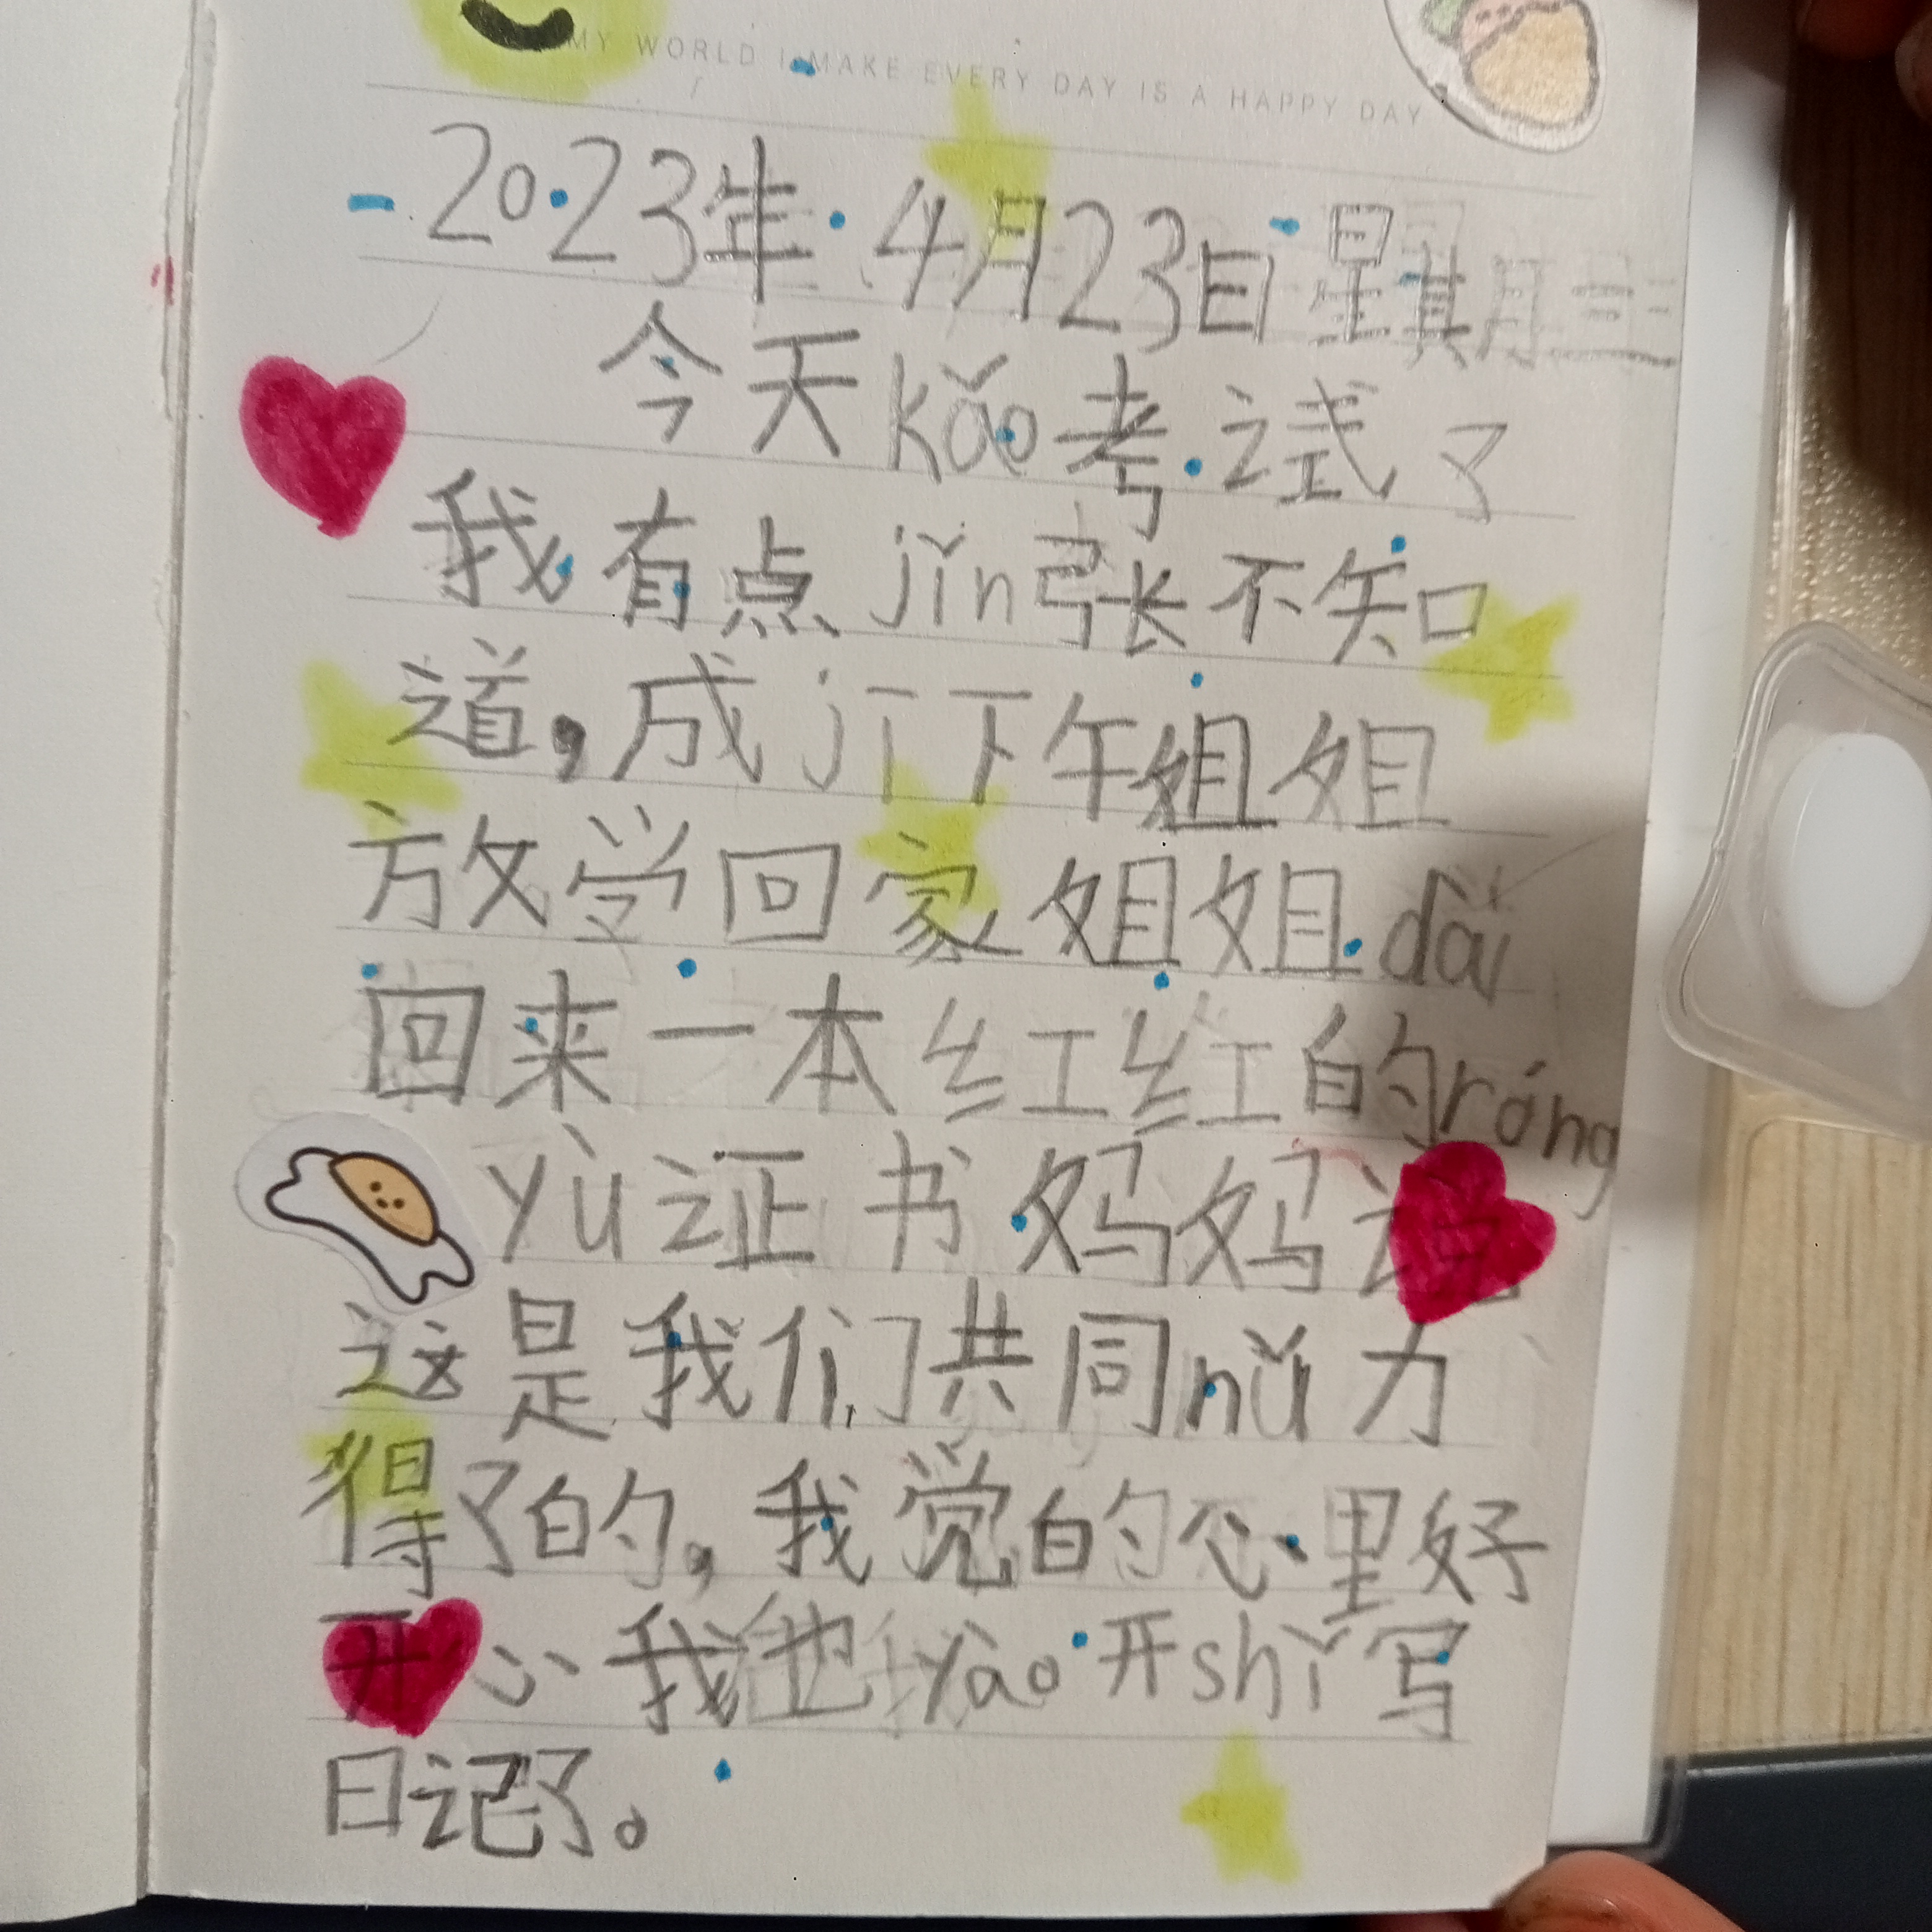 MY WORLD I MAKE EVERY DAY IS A HAPPY DAY
2023年4月23日星期三
今天kǎo考试了
我有点jǐn张不知
道,成jī下午姐姐
放学回家姐姐dài
回来一本红红的róng
yù证书妈妈说
这是我们共同nǔ力
得了的,我觉的心里好
开心我也yào开shǐ写
日记了。